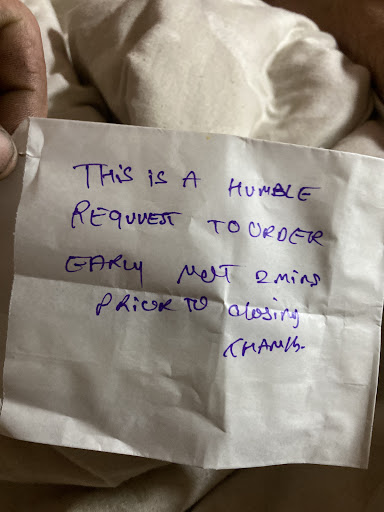 THIS IS A HUMBLE
REQUVEST TO ORDER
EARLY NOT 2 MINS
PRIOR TO closing
THANKS.